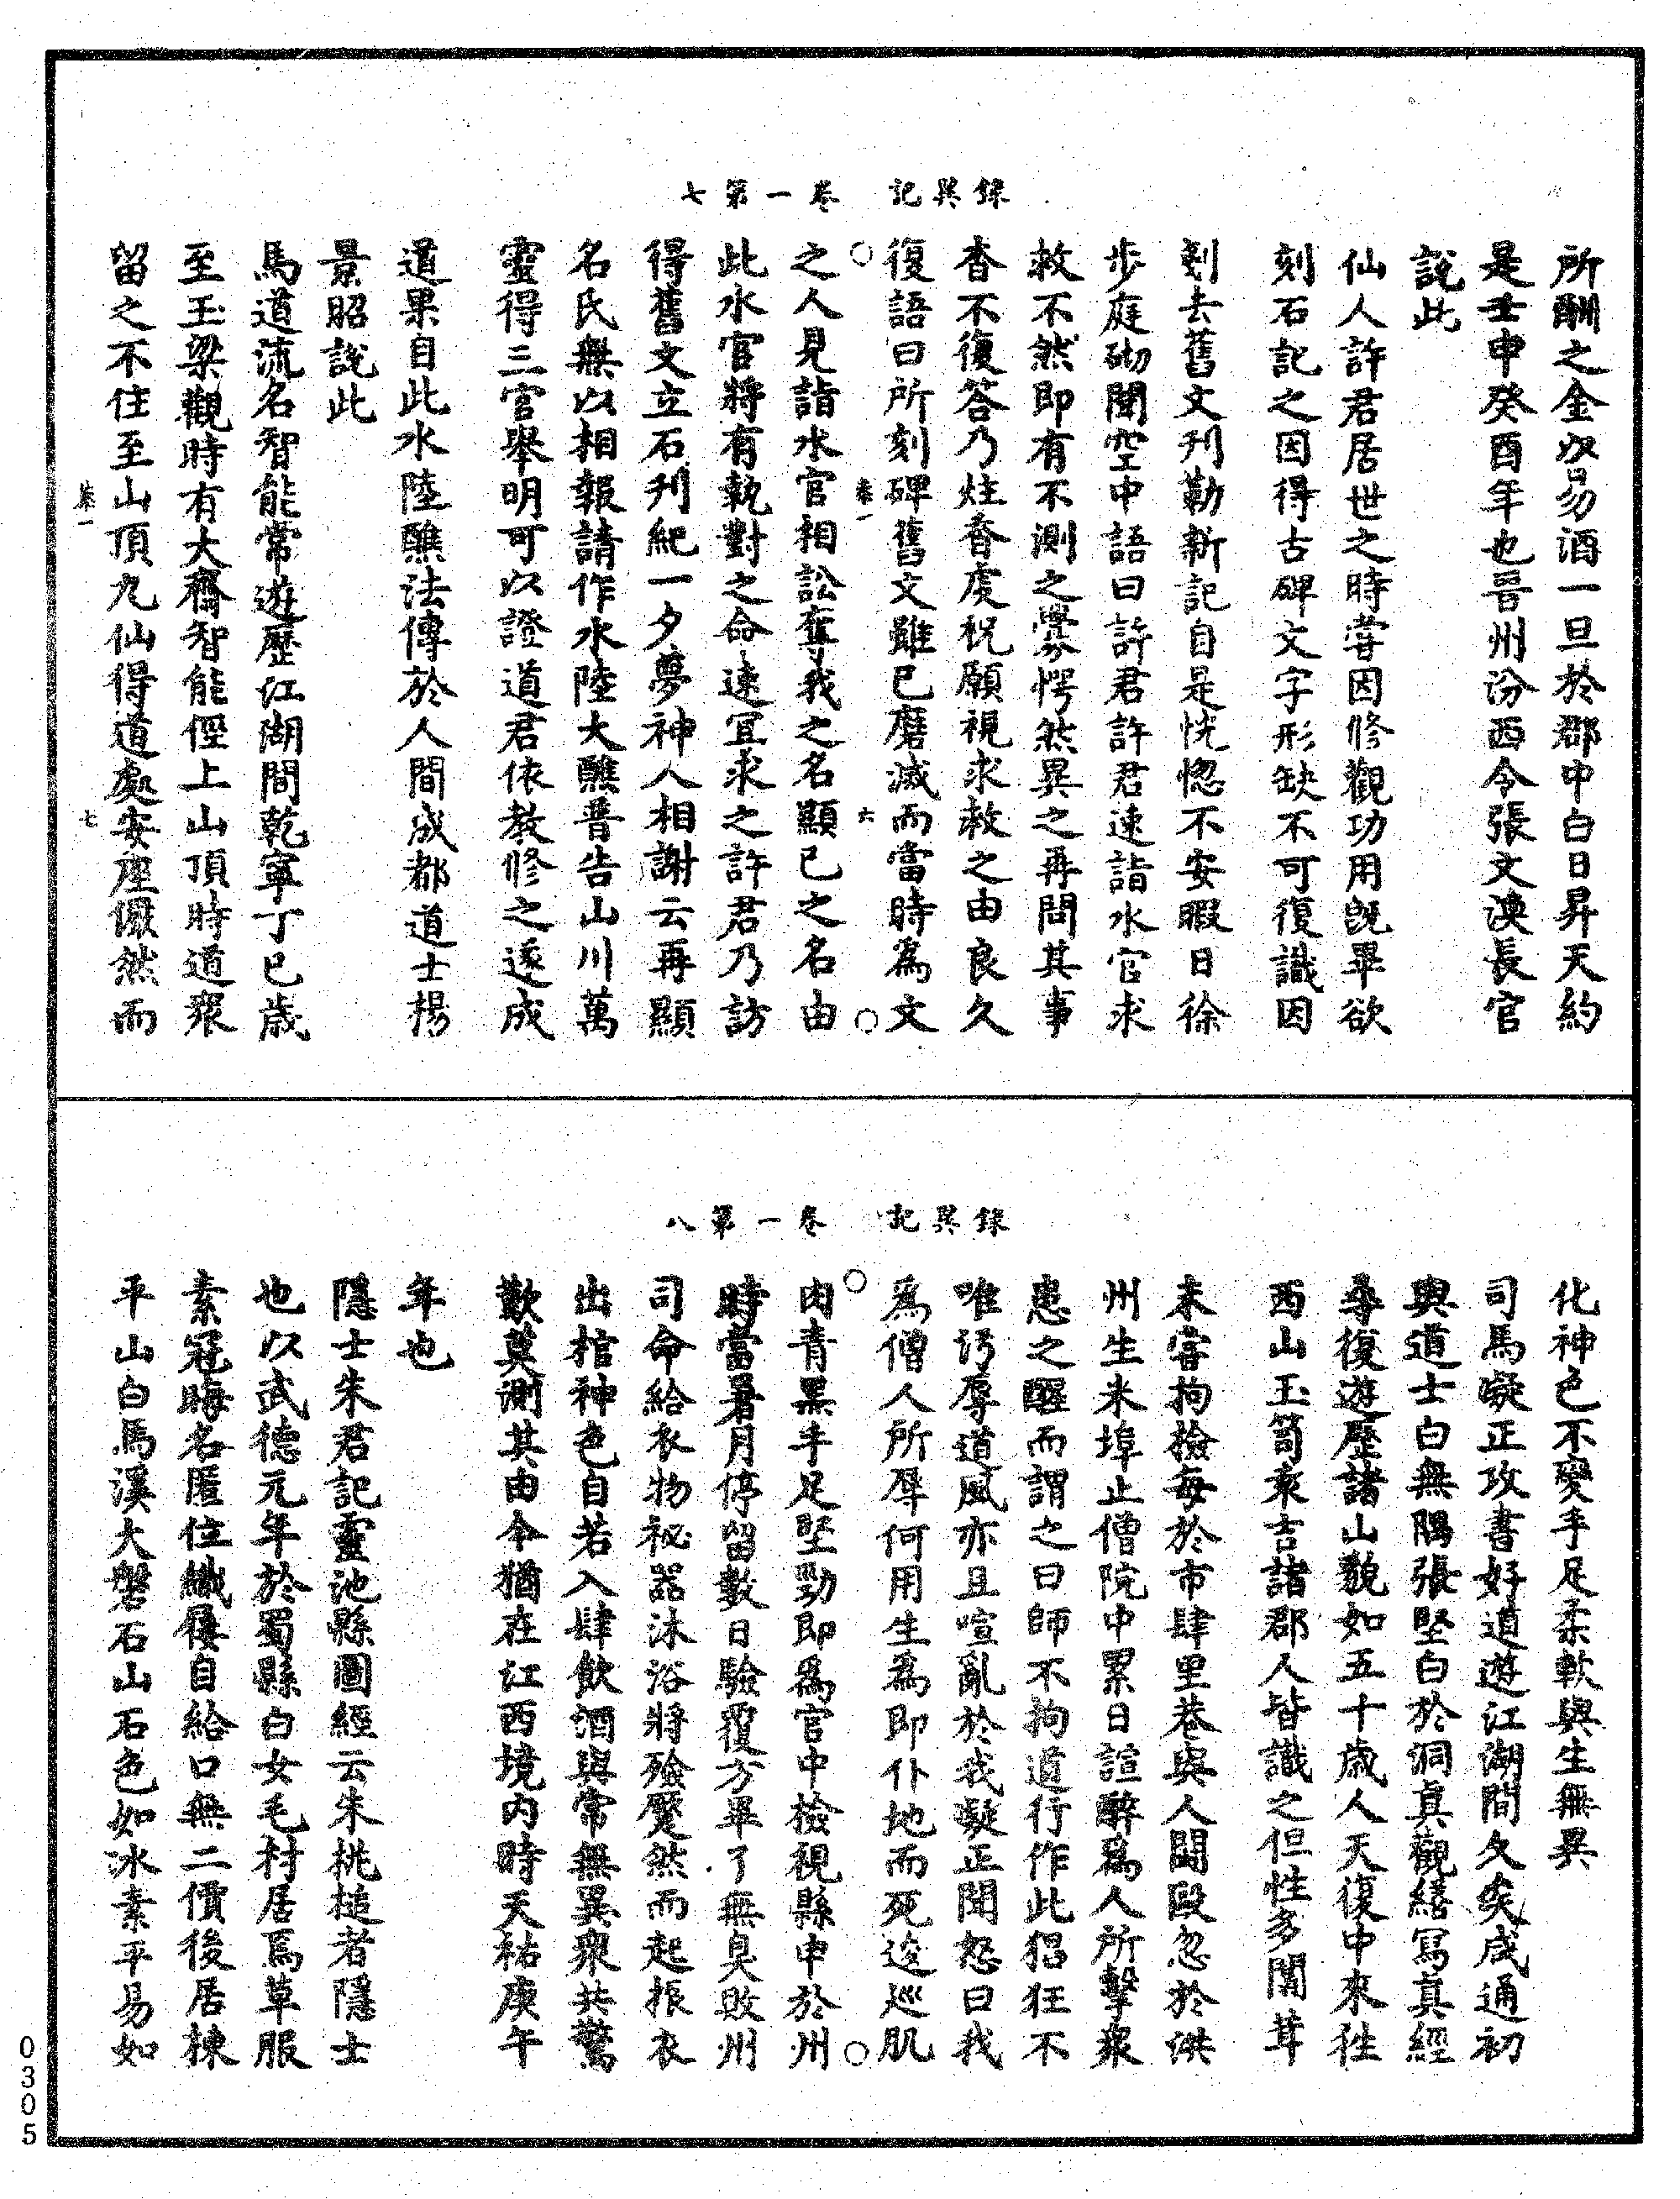 錄異記　卷一第七
所酬之金以易酒一旦於郡中白日昇天約
是壬申癸酉年也晉州汾西令張文渙長官
說此
仙人許君居世之時嘗因修觀功用既畢欲
刻石記之因得古碑文字形缺不可復識因
剗去舊文刊勒新記自是恍惚不安暇日徐
步庭砌聞空中語曰許君許君速詣水官求
救不然即有不測之舋愕然異之再問其事
杳不復答乃炷香虔祝願視求救之由良久
復語曰所刻碑舊文雖已磨滅而當時為文
卷一　六
之人見詣水官相訟奪我之名顯己之名由
此水官將有執對之命速宜求之許君乃訪
得舊文立石刊紀一夕夢神人相謝云再顯
名氏無以相報請作水陸大醮普告山川萬
靈得三官舉明可以證道君依教修之遂成
道果自此水陸醮法傳於人間成都道士楊
景昭說此
馬道流名智能常遊歷江湖間乾寧丁巳歲
至玉梁觀時有大齋智能徑上山頂時道衆
留之不住至山頂九仙得道處安座儼然而
卷一　七
錄異記　卷一第八
化神色不變手足柔軟與生無異
司馬凝正攻書好道遊江湖間久矣咸通初
與道士白無隅張堅白於洞真觀繕寫真經
尋復遊歷諸山貌如五十歲人天復中來往
西山玉笥袁吉諸郡人皆識之但性多闒茸
未嘗拘撿每於市肆里巷與人鬬毆忽於洪
州生米埠止僧院中累日諠醉為人所擊衆
患之醒而謂之曰師不拘道行作此猖狂不
唯汚辱道風亦且喧亂於我凝正聞怒曰我
為僧人所辱何用生為即仆地而死逡巡肌
肉青黑手足堅勁即為官中檢視縣申於州
時當暑月停留數日驗覆方畢了無臭敗州
司命給衣物祕器沐浴將殮蹙然而起振衣
出棺神色自若入肆飲酒與常無異衆共驚
歎莫測其由今猶在江西境內時天祐庚午
年也
隱士朱君記靈池縣圖經云朱桃槌者隱士
也以武德元年於蜀縣白女毛村居焉草服
素冠晦名匿位織屨自給口無二價後居棟
平山白馬溪大磐石山石色如冰素平易如
0305